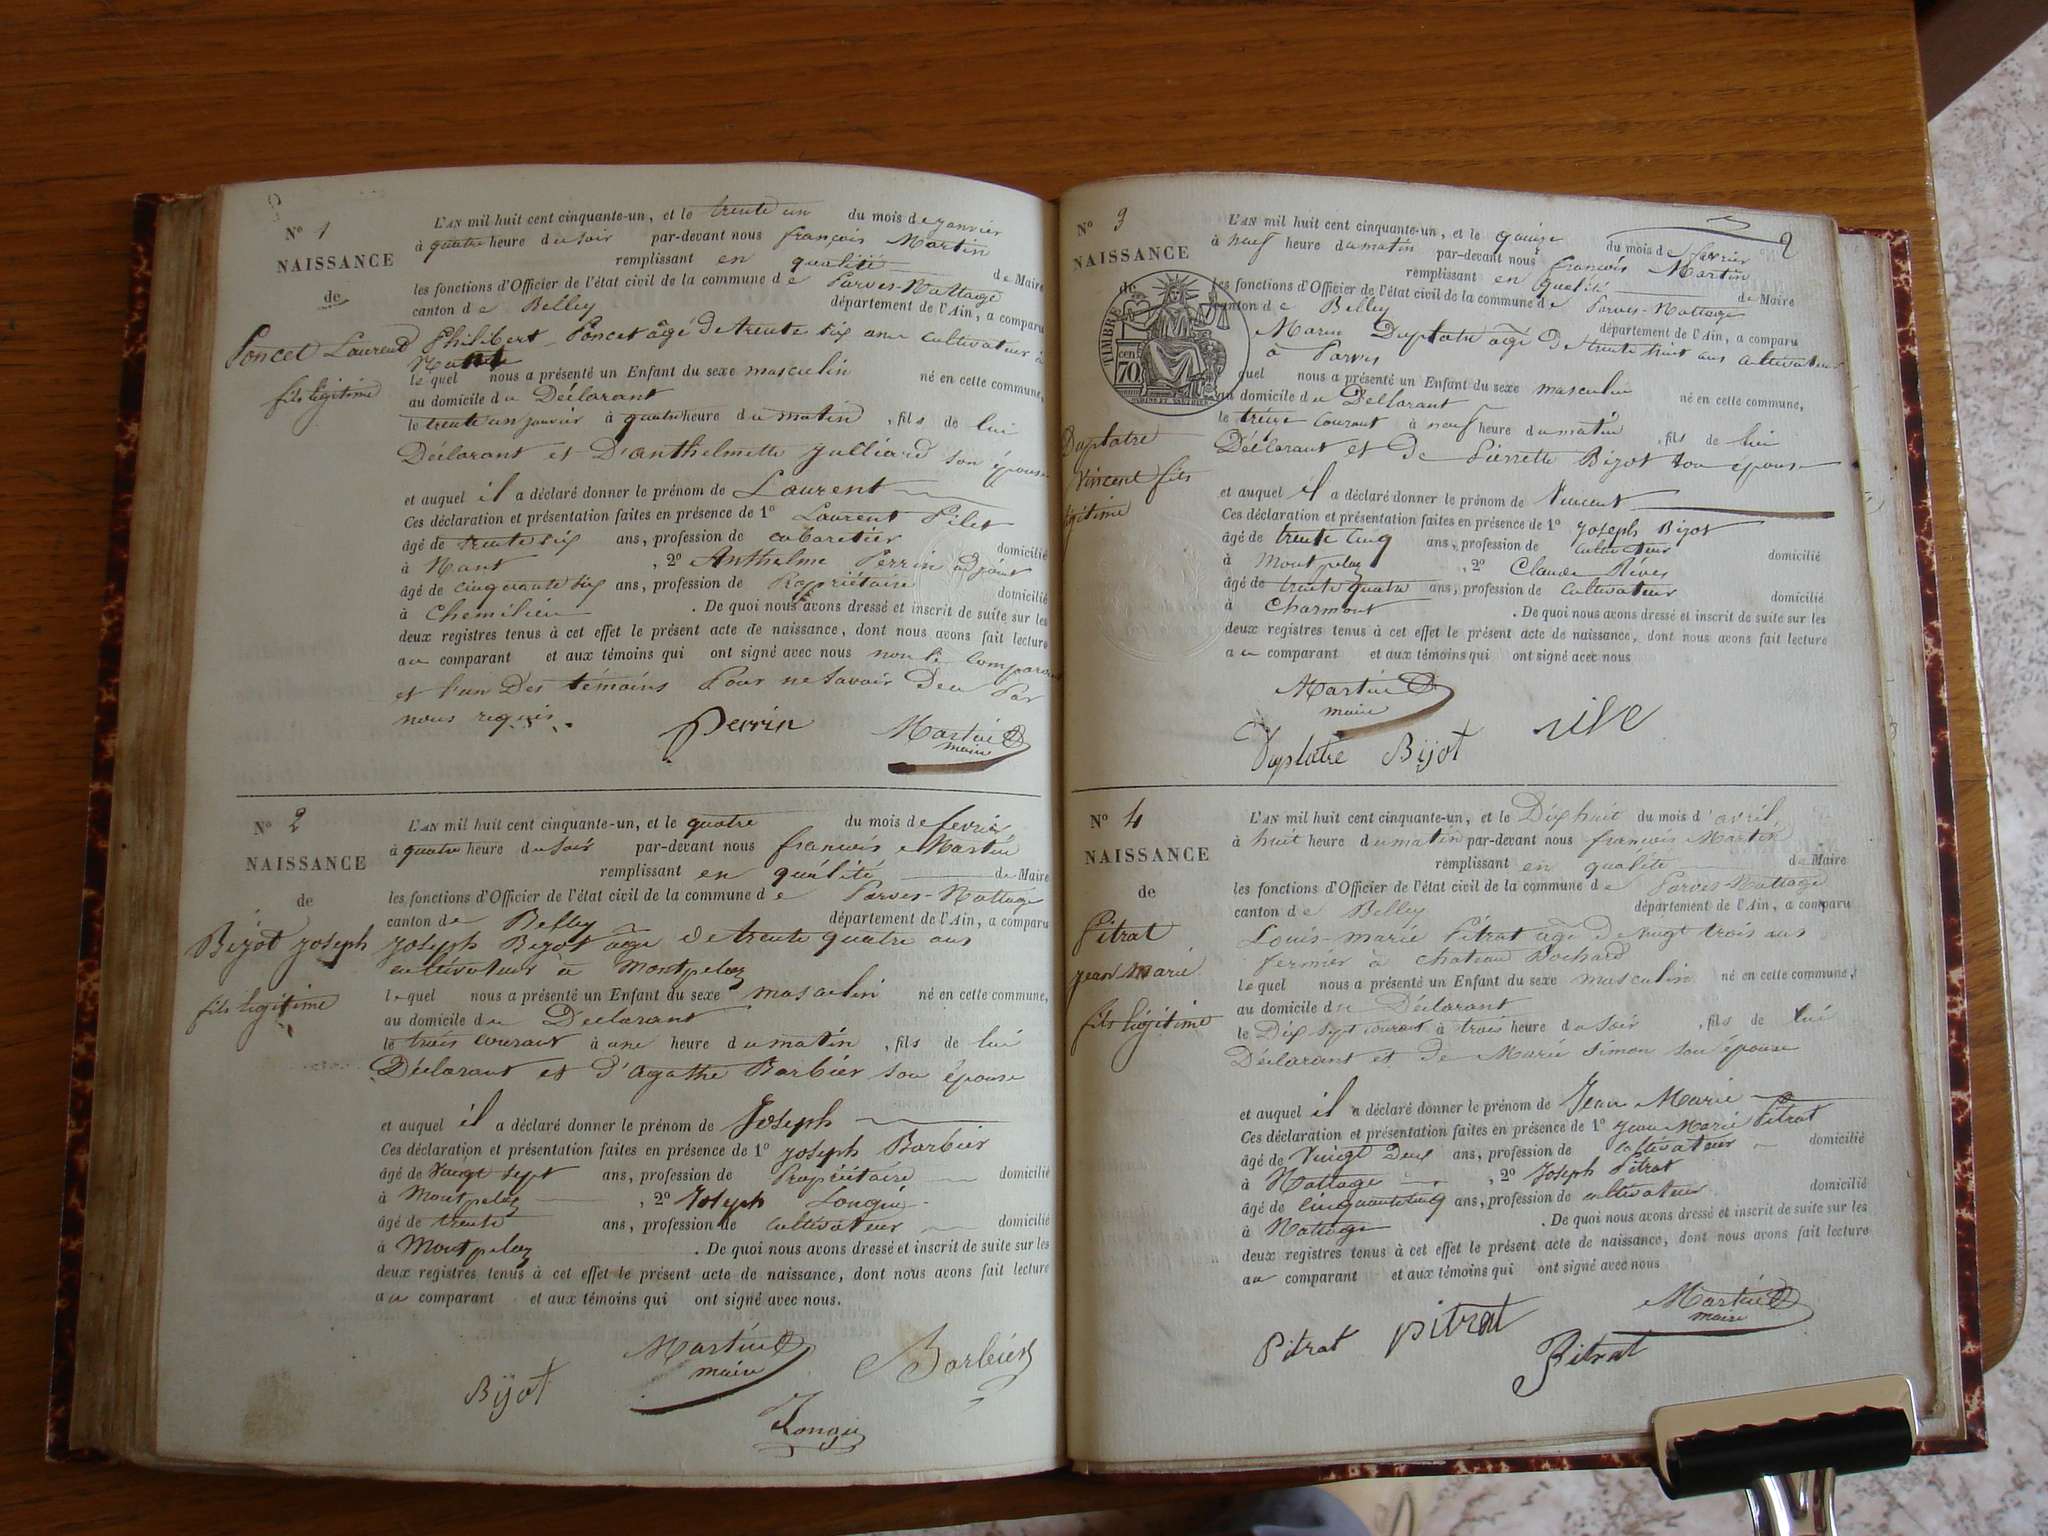 N° 1
NAISSANCE
de
Poncet Laurent
fils légitime
L'AN mil huit cent cinquante-un, et le trente un du mois de janvier
à quatre heure du soir par-devant nous françois Martin
remplissant en qualité de Maire
les fonctions d'Officier de l'état civil de la commune de Parves-Nattage
canton de Belley département de l'Ain, a comparu
Philibert Poncet âgé de trente six ans cultivateur à
Nant
lequel nous a présenté un Enfant du sexe masculin né en cette commune,
au domicile du Déclarant
le trente un janvier à quatre heure du matin, fils de lui
Déclarant et D'anthelmette Julliard son épouse
et auquel il a déclaré donner le prénom de Laurent
Ces déclaration et présentation faites en présence de 1° Laurent Pilet
âgé de trente six ans, profession de cabaretier domicilié
à Nant, 2° Anthelme Perrin adjoint
âgé de cinquante six ans, profession de Propriétaire domicilié
à Chemilieu. De quoi nous avons dressé et inscrit de suite sur les
deux registres tenus à cet effet le présent acte de naissance, dont nous avons fait lecture
au comparant et aux témoins qui ont signé avec nous non le comparant
et l'un Des témoins Pour ne savoir De ce Par
nous requis.
Perrin Martin
maire
N° 2
NAISSANCE
de
Bizot joseph
fils légitime
L'AN mil huit cent cinquante-un, et le quatre du mois de fevrier
à quatre heure du soir par-devant nous françois Martin
remplissant en qualité de Maire
les fonctions d'Officier de l'état civil de la commune de Parves-Nattage
canton de Belley département de l'Ain, a comparu
joseph Bizot âgé de trente quatre ans
cultivateur à Montpelaz
lequel nous a présenté un Enfant du sexe masculin né en cette commune,
au domicile du Déclarant
le trois courant à une heure du matin, fils de lui
Déclarant et d'agathe Barbier son épouse
et auquel il a déclaré donner le prénom de Joseph
Ces déclaration et présentation faites en présence de 1° joseph Barbier
âgé de vingt sept ans, profession de Propriétaire domicilié
à Montpelaz, 2° Joseph Longin
âgé de trente ans, profession de cultivateur domicilié
à Montpelaz. De quoi nous avons dressé et inscrit de suite sur les
deux registres tenus à cet effet le présent acte de naissance, dont nous avons fait lecture
au comparant et aux témoins qui ont signé avec nous.
Martin
maire
Barbier
Bijot
Longin
2
N° 3
NAISSANCE
de
TIMBRE
70 cen
Duplatre
Vincent fils
légitime
L'AN mil huit cent cinquante-un, et le quinze du mois de fevrier
à neuf heure du matin par-devant nous françois Martin
remplissant en qualité de Maire
les fonctions d'Officier de l'état civil de la commune de Parves-Nattage
canton de Belley département de l'Ain, a comparu
Marin Duplatre âgé de trente huit ans cultivateur
à Parves
lequel nous a présenté un Enfant du sexe masculin né en cette commune,
au domicile du Déclarant
le treize courant à neuf heure du matin, fils de lui
Déclarant et de Pierrette Bizot son épouse
et auquel il a déclaré donner le prénom de Vincent
Ces déclaration et présentation faites en présence de 1° Joseph Bizot
âgé de trente cinq ans, profession de cultivateur domicilié
à Montpelaz, 2° Claude
âgé de trente quatre ans, profession de cultivateur domicilié
à Charmont. De quoi nous avons dressé et inscrit de suite sur les
deux registres tenus à cet effet le présent acte de naissance, dont nous avons fait lecture
au comparant et aux témoins qui ont signé avec nous
Martin
maire
Duplatre Bijot
N° 4
NAISSANCE
de
Pitrat
jean Marie
fils légitime
L'AN mil huit cent cinquante-un, et le Dix huit du mois d'avril
à huit heure du matin par-devant nous françois Martin
remplissant en qualité de Maire
les fonctions d'Officier de l'état civil de la commune de Parves-Nattage
canton de Belley département de l'Ain, a comparu
Louis-marie Pitrat âgé de vingt trois ans
fermier à chateau Bochard
lequel nous a présenté un Enfant du sexe masculin né en cette commune,
au domicile du Déclarant
le Dix sept courant à trois heure du soir, fils de lui
Déclarant et de Marie Simon son épouse
et auquel il a déclaré donner le prénom de Jean Marie
Ces déclaration et présentation faites en présence de 1° Jean Marie Pitrat
âgé de vingt Deux ans, profession de cultivateur domicilié
à Nattage, 2° Joseph Pitrat
âgé de cinquante cinq ans, profession de cultivateur domicilié
à Nattage. De quoi nous avons dressé et inscrit de suite sur les
deux registres tenus à cet effet le présent acte de naissance, dont nous avons fait lecture
au comparant et aux témoins qui ont signé avec nous
Martin
maire
Pitrat pitrat
Pitrat